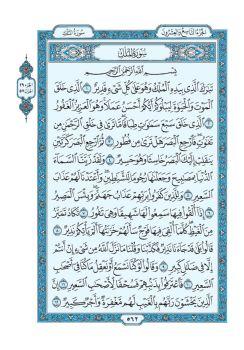 الجزء التاسع والعشرون
سورة الملك
سورة الملك
بسم الله الرحمن الرحيم
تبارك الذي بيده الملك وهو على كل شيء قدير ١ الذي خلق
الموت والحيوة ليبلوكم أيكم أحسن عملا وهو العزيز الغفور
٢ الذي خلق سبع سموت طباقا ما ترى في خلق الرحمن من
تفوت فارجع البصر هل ترى من فطور ٣ ثم ارجع البصر كرتين
ينقلب إليك البصر خاسئا وهو حسير ٤ ولقد زينا السماء
الدنيا بمصبيح وجعلنها رجوما للشيطين وأعتدنا لهم عذاب
السعير ٥ وللذين كفروا بربهم عذاب جهنم وبئس المصير
٦ إذا ألقوا فيها سمعوا لها شهيقا وهي تفور ٧ تكاد تميز
من الغيظ كلما ألقي فيها فوج سألهم خزنتها ألم يأتكم نذير ٨
قالوا بلى قد جاءنا نذير فكذبنا وقلنا ما نزل الله من شيء إن أنتم
إلا في ضلل كبير ٩ وقالوا لو كنا نسمع أو نعقل ما كنا في أصحب
السعير ١٠ فاعترفوا بذنبهم فسحقا لأصحب السعير ١١ إن
الذين يخشون ربهم بالغيب لهم مغفرة وأجر كبير ١٢
٥٦٢